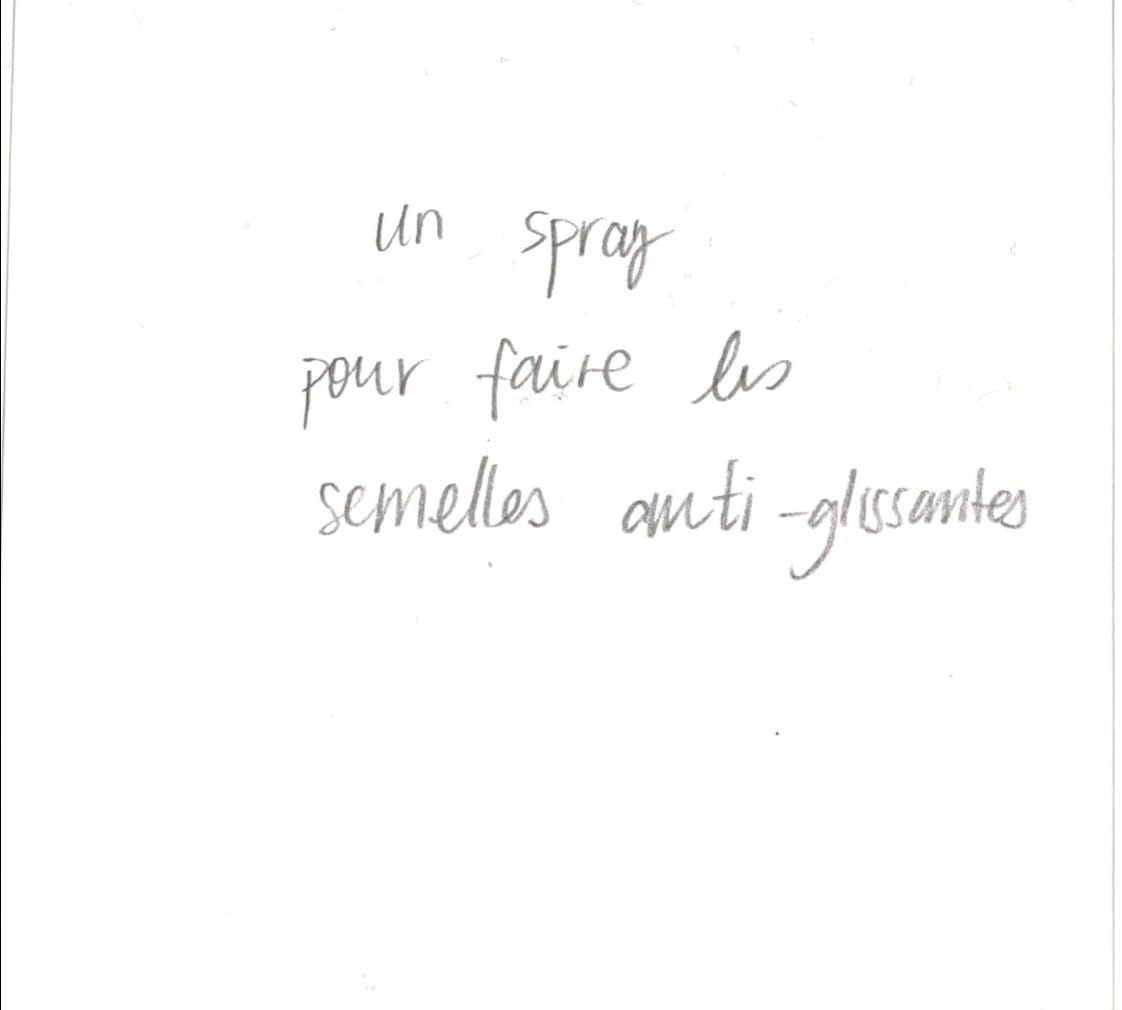 un spray
pour faire les
semelles anti-glissantes